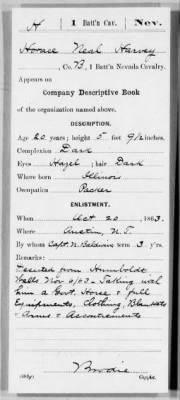 H 1 Batt'n Cav. Nev.
Horace Neal Harvey
, Co. B, 1 Batt'n Nevada Cavalry.
Appears on
Company Descriptive Book
of the organization named above.
DESCRIPTION.
Age 20 years; height 5 feet 9 1/2 inches.
Complexion Dark
Eyes Hazel ; hair Dark
Where born Illinois
Occupation Packer
ENLISTMENT.
When Oct 20 , 1863.
Where Austin, N.T.
By whom Capt. N. Baldwin term 3 y'rs.
Remarks:
Deserted from Humboldt
Wells Nov 6/63 - Taking with
him a Govt. Horse & full
Equipments, Clothing, Blankets
& Arms & Accoutrements
Brodie
Copyist.